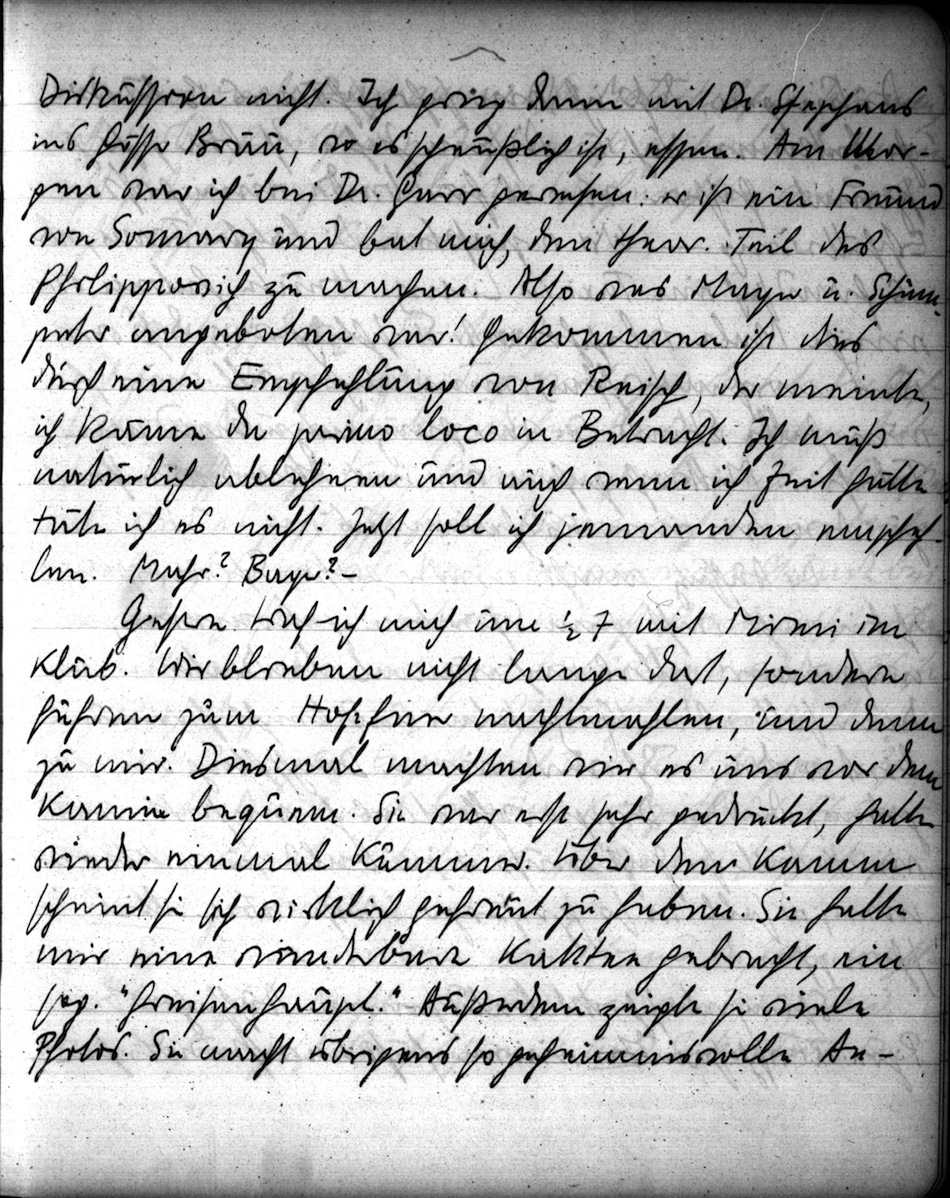 Diskussion nicht. Ich ging dann mit Dr. Stephans
ins Grosse Bräu, wo es scheußlich ist, essen. Am Mor-
gen war ich bei Dr. gewesen: er ist ein Freund
von Somary und bat mich, den theor. Teil des
Philippovich zu machen. Also was Mayer u. Schum-
peter angeboten war! Gekommen ist dies
durch eine Empfehlung von Reisch, der meinte,
ich käme da primo loco in Betracht. Ich muß
natürlich ablehnen und auch wenn ich Zeit hätte
täte ich es nicht. Jetzt soll ich jemanden empfeh-
len. Mahr? Bayer? –
Gestern traf ich mich um ½ 7 mit Mimi im
Klub. Wir blieben nicht lange dort, sondern
fuhren zum nachtmahlen, und dann
zu mir. Diesmal machten wir es uns vor dem
Kamin bequem. Sie war erst sehr gedrückt, hatte
wieder einmal Kummer. Über den Kamin
scheint sie sich wirklich gefreut zu haben. Sie hatte
mir eine wunderbare Kaktee gebracht, ein
sog. "Greisenhaupt." Außerdem zeigte sie viele
Photos. Sie macht übrigens so geheimnisvolle An-